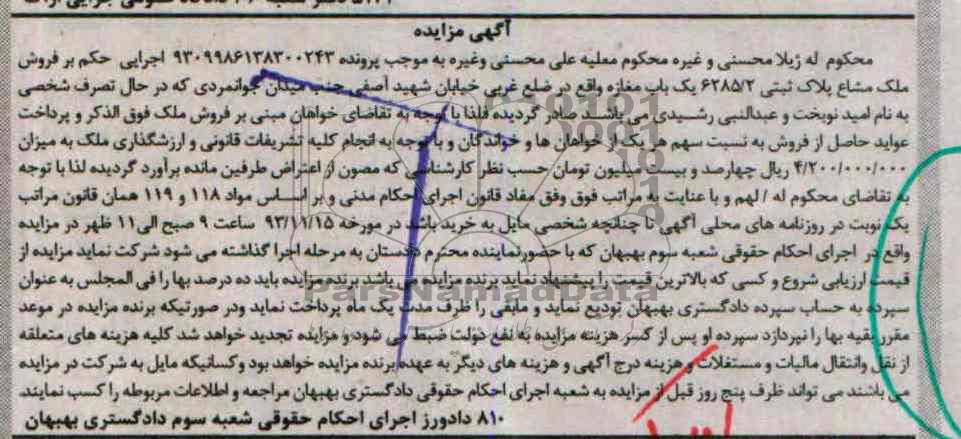 آگهی مزایده
محکوم له ژیلا محسنی و غیره محکوم معلیه علی محسنی وغیره به موجب پرونده ۹۳۰۹۹۸۶۱۳۸۳۰۰۲۴۳ اجرایی حکم بر فروش
ملک مشاع پلاک ثبتی ۶۲۸۵/۲ یک باب مغازه واقع در ضلع غربی خیابان شهید آصفی جنب میدان جوانمردی که در حال تصرف شخصی
به نام امید نوبخت و عبدالنبی رشیدی می باشد صادر گردیده فلذا با توجه به تقاضای خواهان مبنی بر فروش ملک فوق الذکر و پرداخت
عواید حاصل از فروش به نسبت سهم هر یک از خواهان ها و خواندگان و با توجه به انجام کلیه تشریفات قانونی و ارزشگذاری ملک به میزان
۴/۲۰۰/۰۰۰/۰۰۰ ریال چهارصد و بیست میلیون تومان حسب نظر کارشناسی که مصون از اعتراض طرفین مانده برآورد گردیده لذا با توجه
به تقاضای محکوم له / لهم و با عنایت به مراتب فوق وفق مفاد قانون اجرای احکام مدنی و بر اساس مواد ۱۱۸ و ۱۱۹ همان قانون مراتب
یک نوبت در روزنامه های محلی آگهی تا چنانچه شخصی مایل به خرید باشد در مورخه ۹۳/۱۱/۱۵ ساعت ۹ صبح الی ۱۱ ظهر در مزایده
واقع در اجرای احکام حقوقی شعبه سوم بهبهان که با حضورنماینده محترم دادستان به مرحله اجرا گذاشته می شود شرکت نماید مزایده از
قیمت ارزیابی شروع و کسی که بالاترین قیمت را پیشنهاد نماید برنده مزایده می باشد. برنده مزایده باید ده درصد بها را فی المجلس به عنوان
سپرده به حساب سپرده دادگستری بهبهان تودیع نماید و مابقی را ظرف مدت یک ماه پرداخت نماید ودر صورتیکه برنده مزایده در موعد
مقرر بقیه بها را نپردازد سپرده او پس از کسر هزینه مزایده به نفع دولت ضبط می شود و مزایده تجدید خواهد شد کلیه هزینه های متعلقه
از نقل وانتقال مالیات و مستغلات و هزینه درج آگهی و هزینه های دیگر به عهده برنده مزایده خواهد بود و کسانیکه مایل به شرکت در مزایده
می باشند می تواند ظرف پنج روز قبل از مزایده به شعبه اجرای احکام حقوقی دادگستری بهبهان مراجعه و اطلاعات مربوطه را کسب نمایند.
۸۱۰ دادورز اجرای احکام حقوقی شعبه سوم دادگستری بهبهان
ParsNamadData